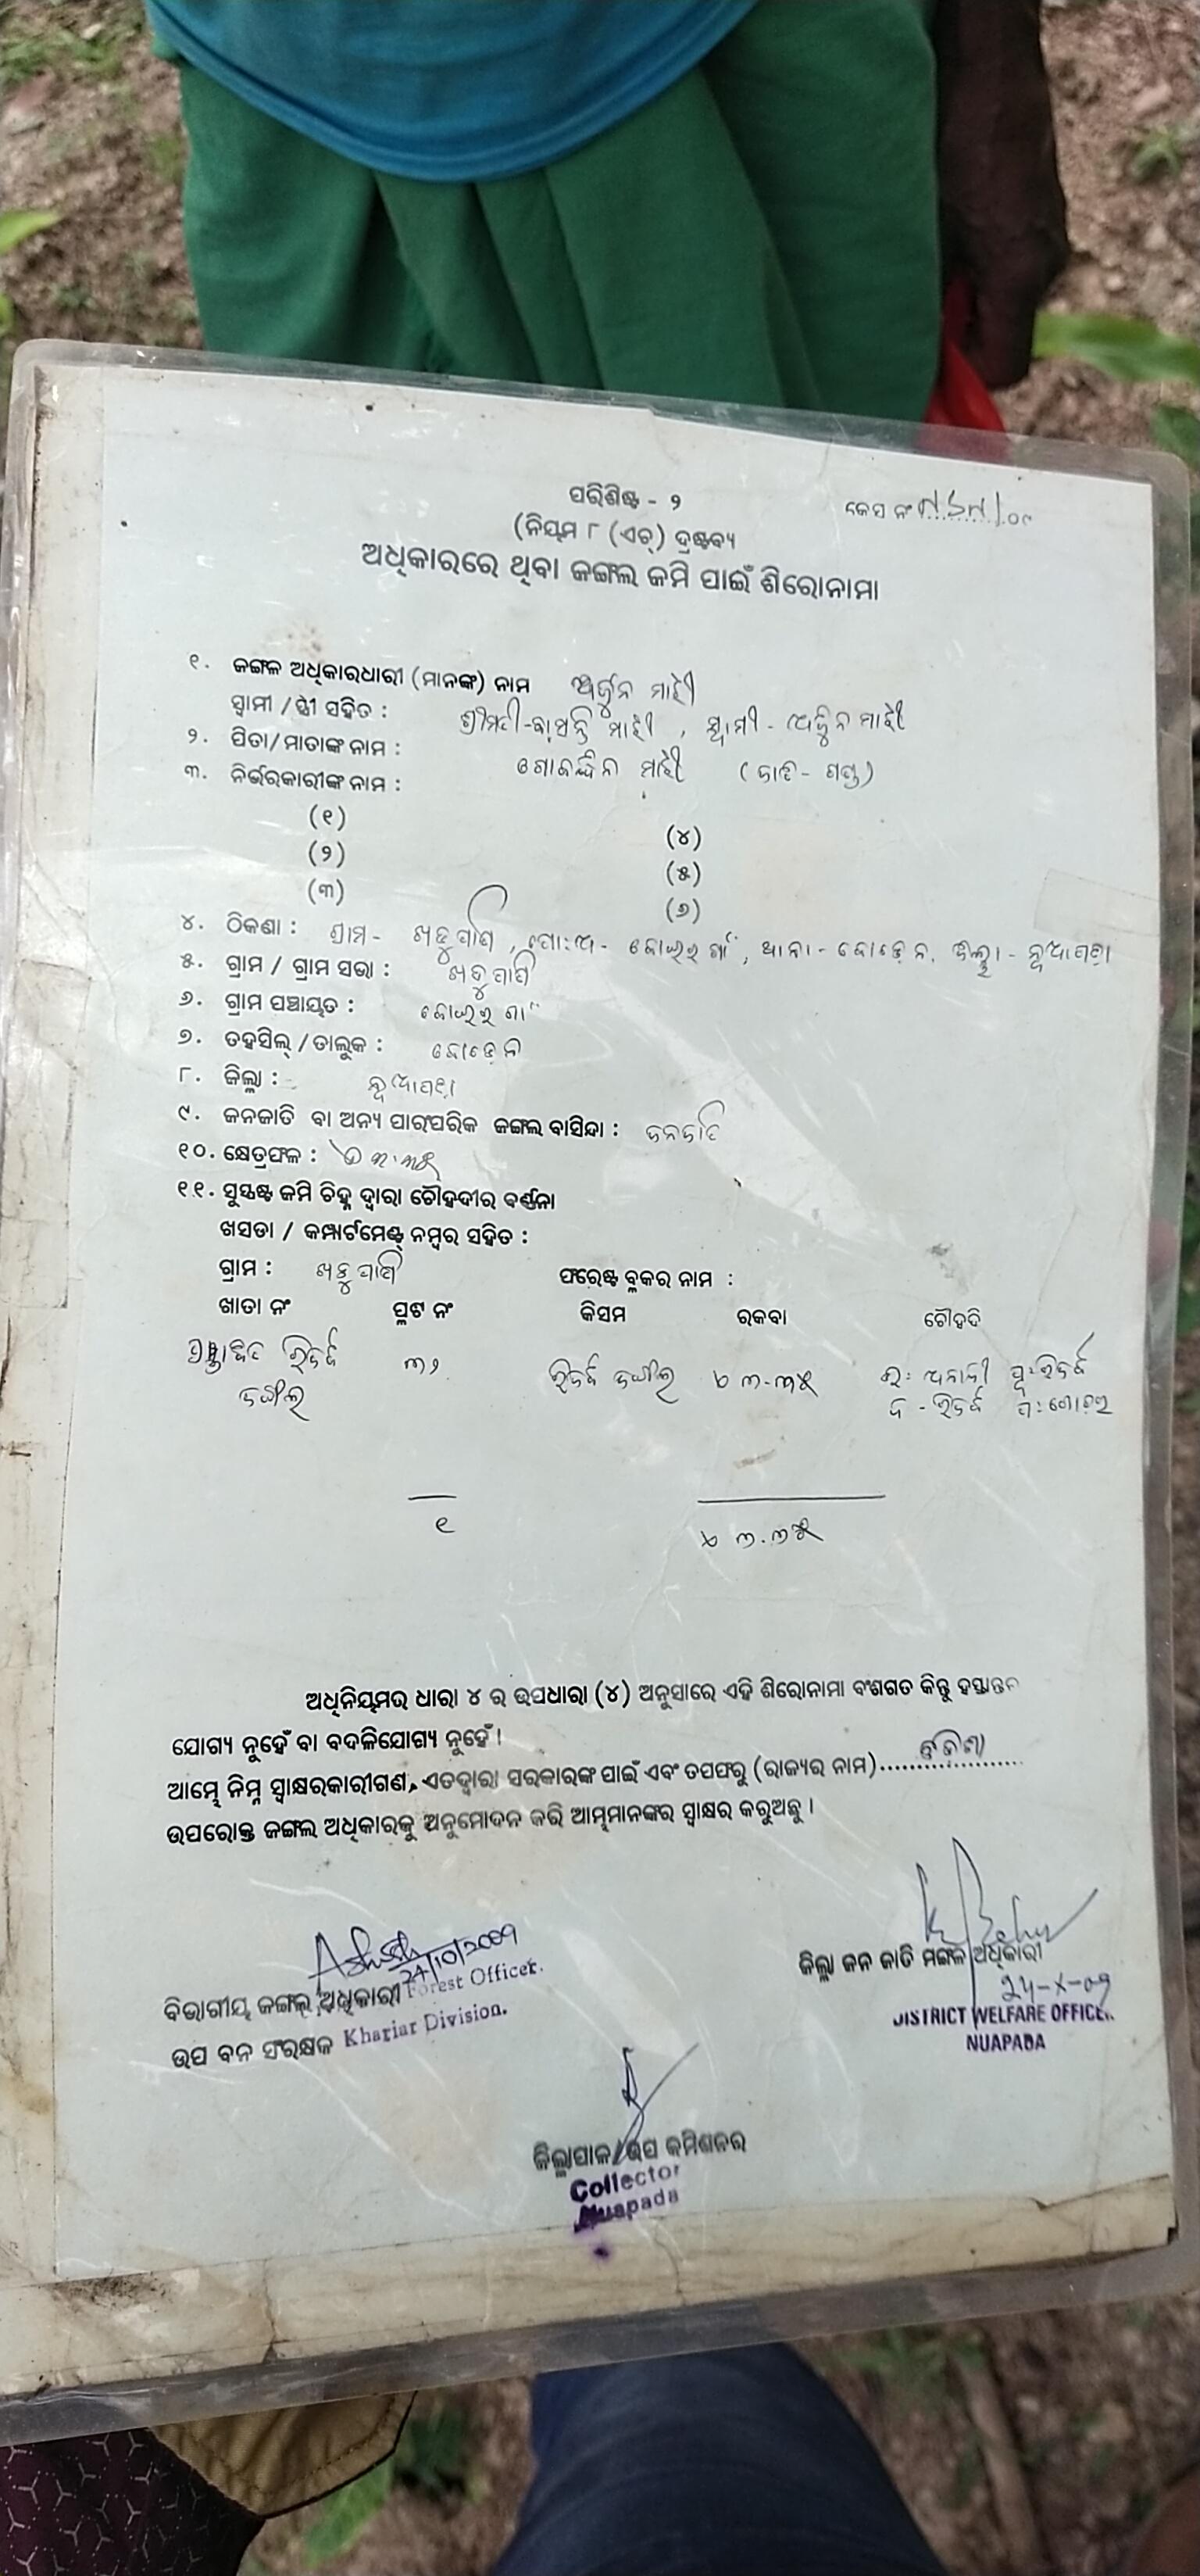 ପରିଶିଷ୍ଟ - ୨
କେସ ନଂ
(ନିୟମ ୮ (ଏଚ୍) ଦ୍ରଷ୍ଟବ୍ୟ
ଅଧିକାରରେ ଥିବା ଜଙ୍ଗଲ ଜମି ପାଇଁ ଶିରୋନାମା
୧. ଜଙ୍ଗଳ ଅଧିକାରଧାରୀ (ମାନଙ୍କ) ନାମ ଅର୍ଜୁନ ମାଝୀ
ସ୍ୱାମୀ / ସ୍ତ୍ରୀ ସହିତ : ଶ୍ରୀମତୀ-ବାସନ୍ତି ମାଝୀ , ସ୍ୱାମୀ - ଅର୍ଜୁନ ମାଝୀ
୨. ପିତା/ମାତାଙ୍କ ନାମ : ମାଝୀ (ଜାତି - ଗଣ୍ଡ)
୩. ନିର୍ଭରକାରୀଙ୍କ ନାମ :
(୧) (୪)
(୨) (୫)
(୩) (୬)
୪. ଠିକଣା : ଗ୍ରାମ - , ପୋ:ଅ - , ଥାନା - ବୋଡ଼େନ, ଜିଲ୍ଲା - ନୂଆପଡ଼ା
୫. ଗ୍ରାମ / ଗ୍ରାମ ସଭା :
୬. ଗ୍ରାମ ପଞ୍ଚାୟତ :
୭. ତହସିଲ୍ / ତାଲୁକ : ବୋଡ଼େନ
୮. ଜିଲ୍ଲା : ନୂଆପଡ଼ା
୯. ଜନଜାତି ବା ଅନ୍ୟ ପାରଂପରିକ ଜଙ୍ଗଲ ବାସିନ୍ଦା : ଜନଜାତି
୧୦. କ୍ଷେତ୍ରଫଳ :
୧୧. ସୁସ୍ପଷ୍ଟ ଜମି ଚିହ୍ନ ଦ୍ୱାରା ଚୌହଦୀର ବର୍ଣ୍ଣନା
ଖସଡା / କମ୍ପାର୍ଟମେଣ୍ଟ୍ ନମ୍ବର ସହିତ :
ଗ୍ରାମ : ଫରେଷ୍ଟ ବ୍ଲକର ନାମ :
ଖାତା ନଂ ପ୍ଲଟ ନଂ କିସମ ରକବା ଚୌହଦି
ପ୍ରସ୍ତାବିତ ରିଜର୍ଭ ୩୨ ରିଜର୍ଭ ଜଙ୍ଗଲ ୩-୩୫
ଜଙ୍ଗଲ
୧ ୩.୩୫
ଅଧିନିୟମର ଧାରା ୪ ର ଉପଧାରା (୪) ଅନୁସାରେ ଏହି ଶିରୋନାମା ବଂଶଗତ କିନ୍ତୁ ହସ୍ତାନ୍ତର
ଯୋଗ୍ୟ ନୁହେଁ ବା ବଦଳିଯୋଗ୍ୟ ନୁହେଁ ।
ଆମ୍ଭେ ନିମ୍ନ ସ୍ୱାକ୍ଷରକାରୀଗଣ, ଏତଦ୍ୱାରା ସରକାରଙ୍କ ପାଇଁ ଏବଂ ତପଫରୁ (ରାଜ୍ୟର ନାମ) ଓଡିଶା
ଉପରୋକ୍ତ ଜଙ୍ଗଲ ଅଧିକାରକୁ ଅନୁମୋଦନ କରି ଆମ୍ଭମାନଙ୍କର ସ୍ୱାକ୍ଷର କରୁଅଛୁ ।
24/10/2009
ବିଭାଗୀୟ ଜଙ୍ଗଲ୍ ଅଧିକାରୀ Forest Officer.
ଉପ ବନ ସଂରକ୍ଷକ Khariar Division.
ଜିଲ୍ଲା ଜନ ଜାତି ମଙ୍ଗଳ ଅଧିକାରୀ
24-X-09
DISTRICT WELFARE OFFICER
NUAPADA
ଜିଲ୍ଲାପାଳ / ଉପ କମିଶନର
Collector
Nuapada